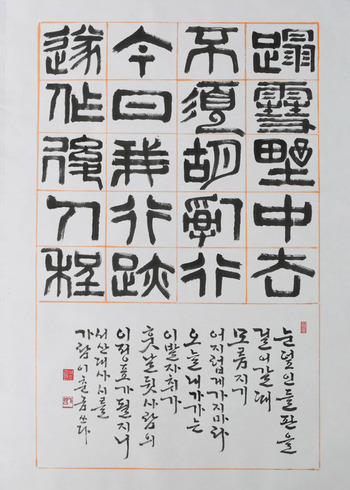 蹋雪野中去
不須胡亂行
今日我行跡
遂作後人程
눈 덮인 들판을
걸어갈 때
모름지기
어지럽게 가지마라
오늘 내가 가는
이 발자취가
훗날 뒷사람의
이정표가 될지니
서산대사 시를
가람 쓰다